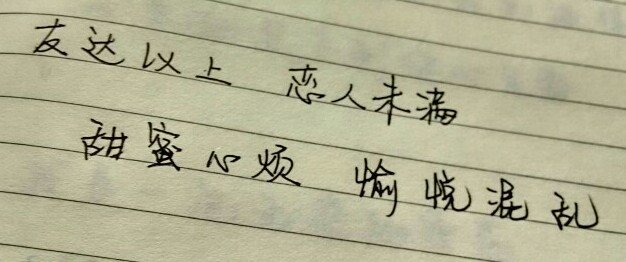 友达以上 恋人未满
甜蜜心烦 愉悦混乱